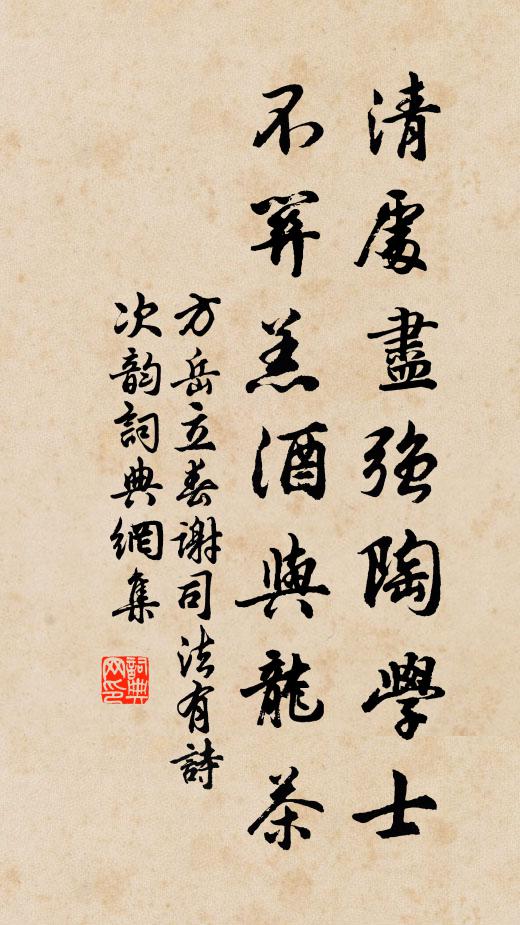 清處盡強陶學士
不算羔酒與龍茶
方岳立春謝司法有詩
次韵詞典網集
詞典網印